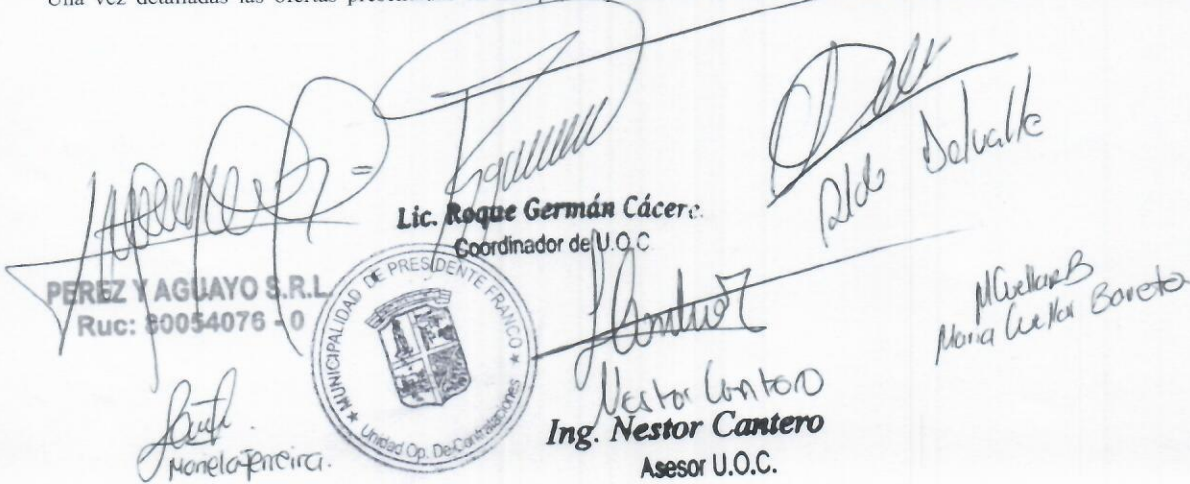 Una vez detalladas las ofertas
Aldo Delvalle
Lic. Roque Germán Cácere
Coordinador de U.O.C.
PEREZ Y AGUAYO S.R.L
Ruc: 80054076 - 0
MUNICIPALIDAD DE PRESIDENTE FRANCO
Unidad Op. De Contrataciones
MCuellarB
Maria Cuellar Bareto
Nestor Cantero
Ing. Nestor Cantero
Asesor U.O.C.
Mariela Ferreira.